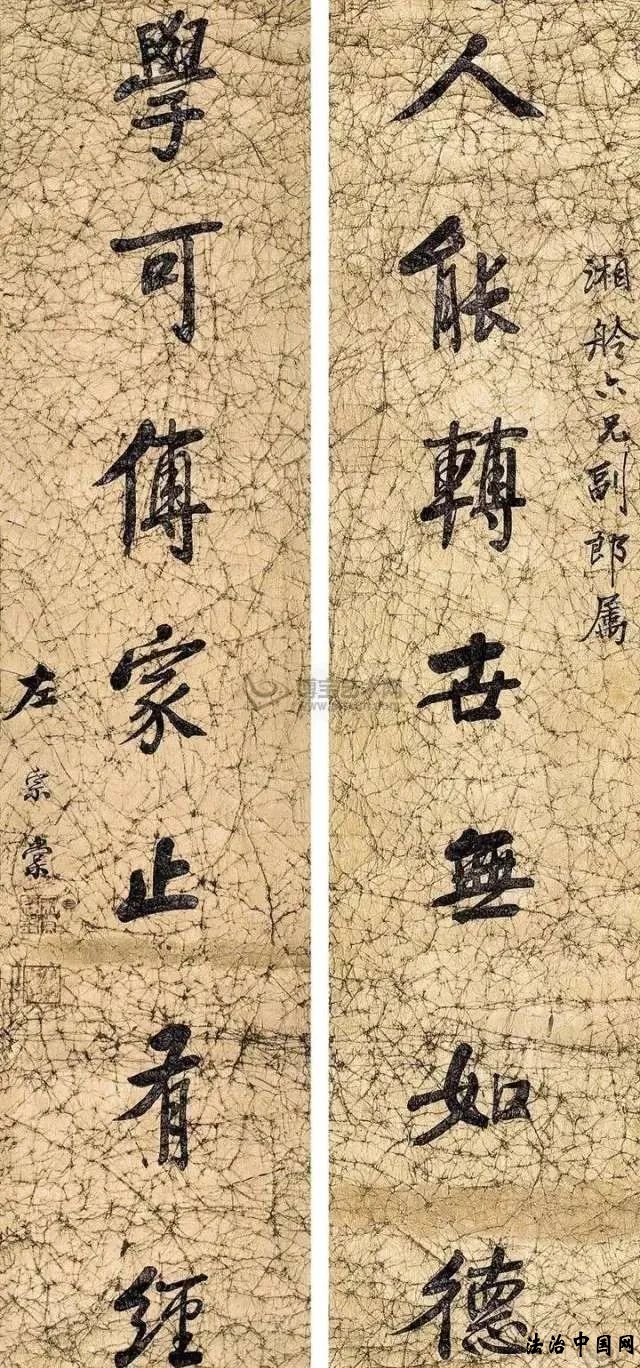 湘舲六兄副郎属
人能轉世無如德
學可傳家止有經
左宗棠
法治中国网